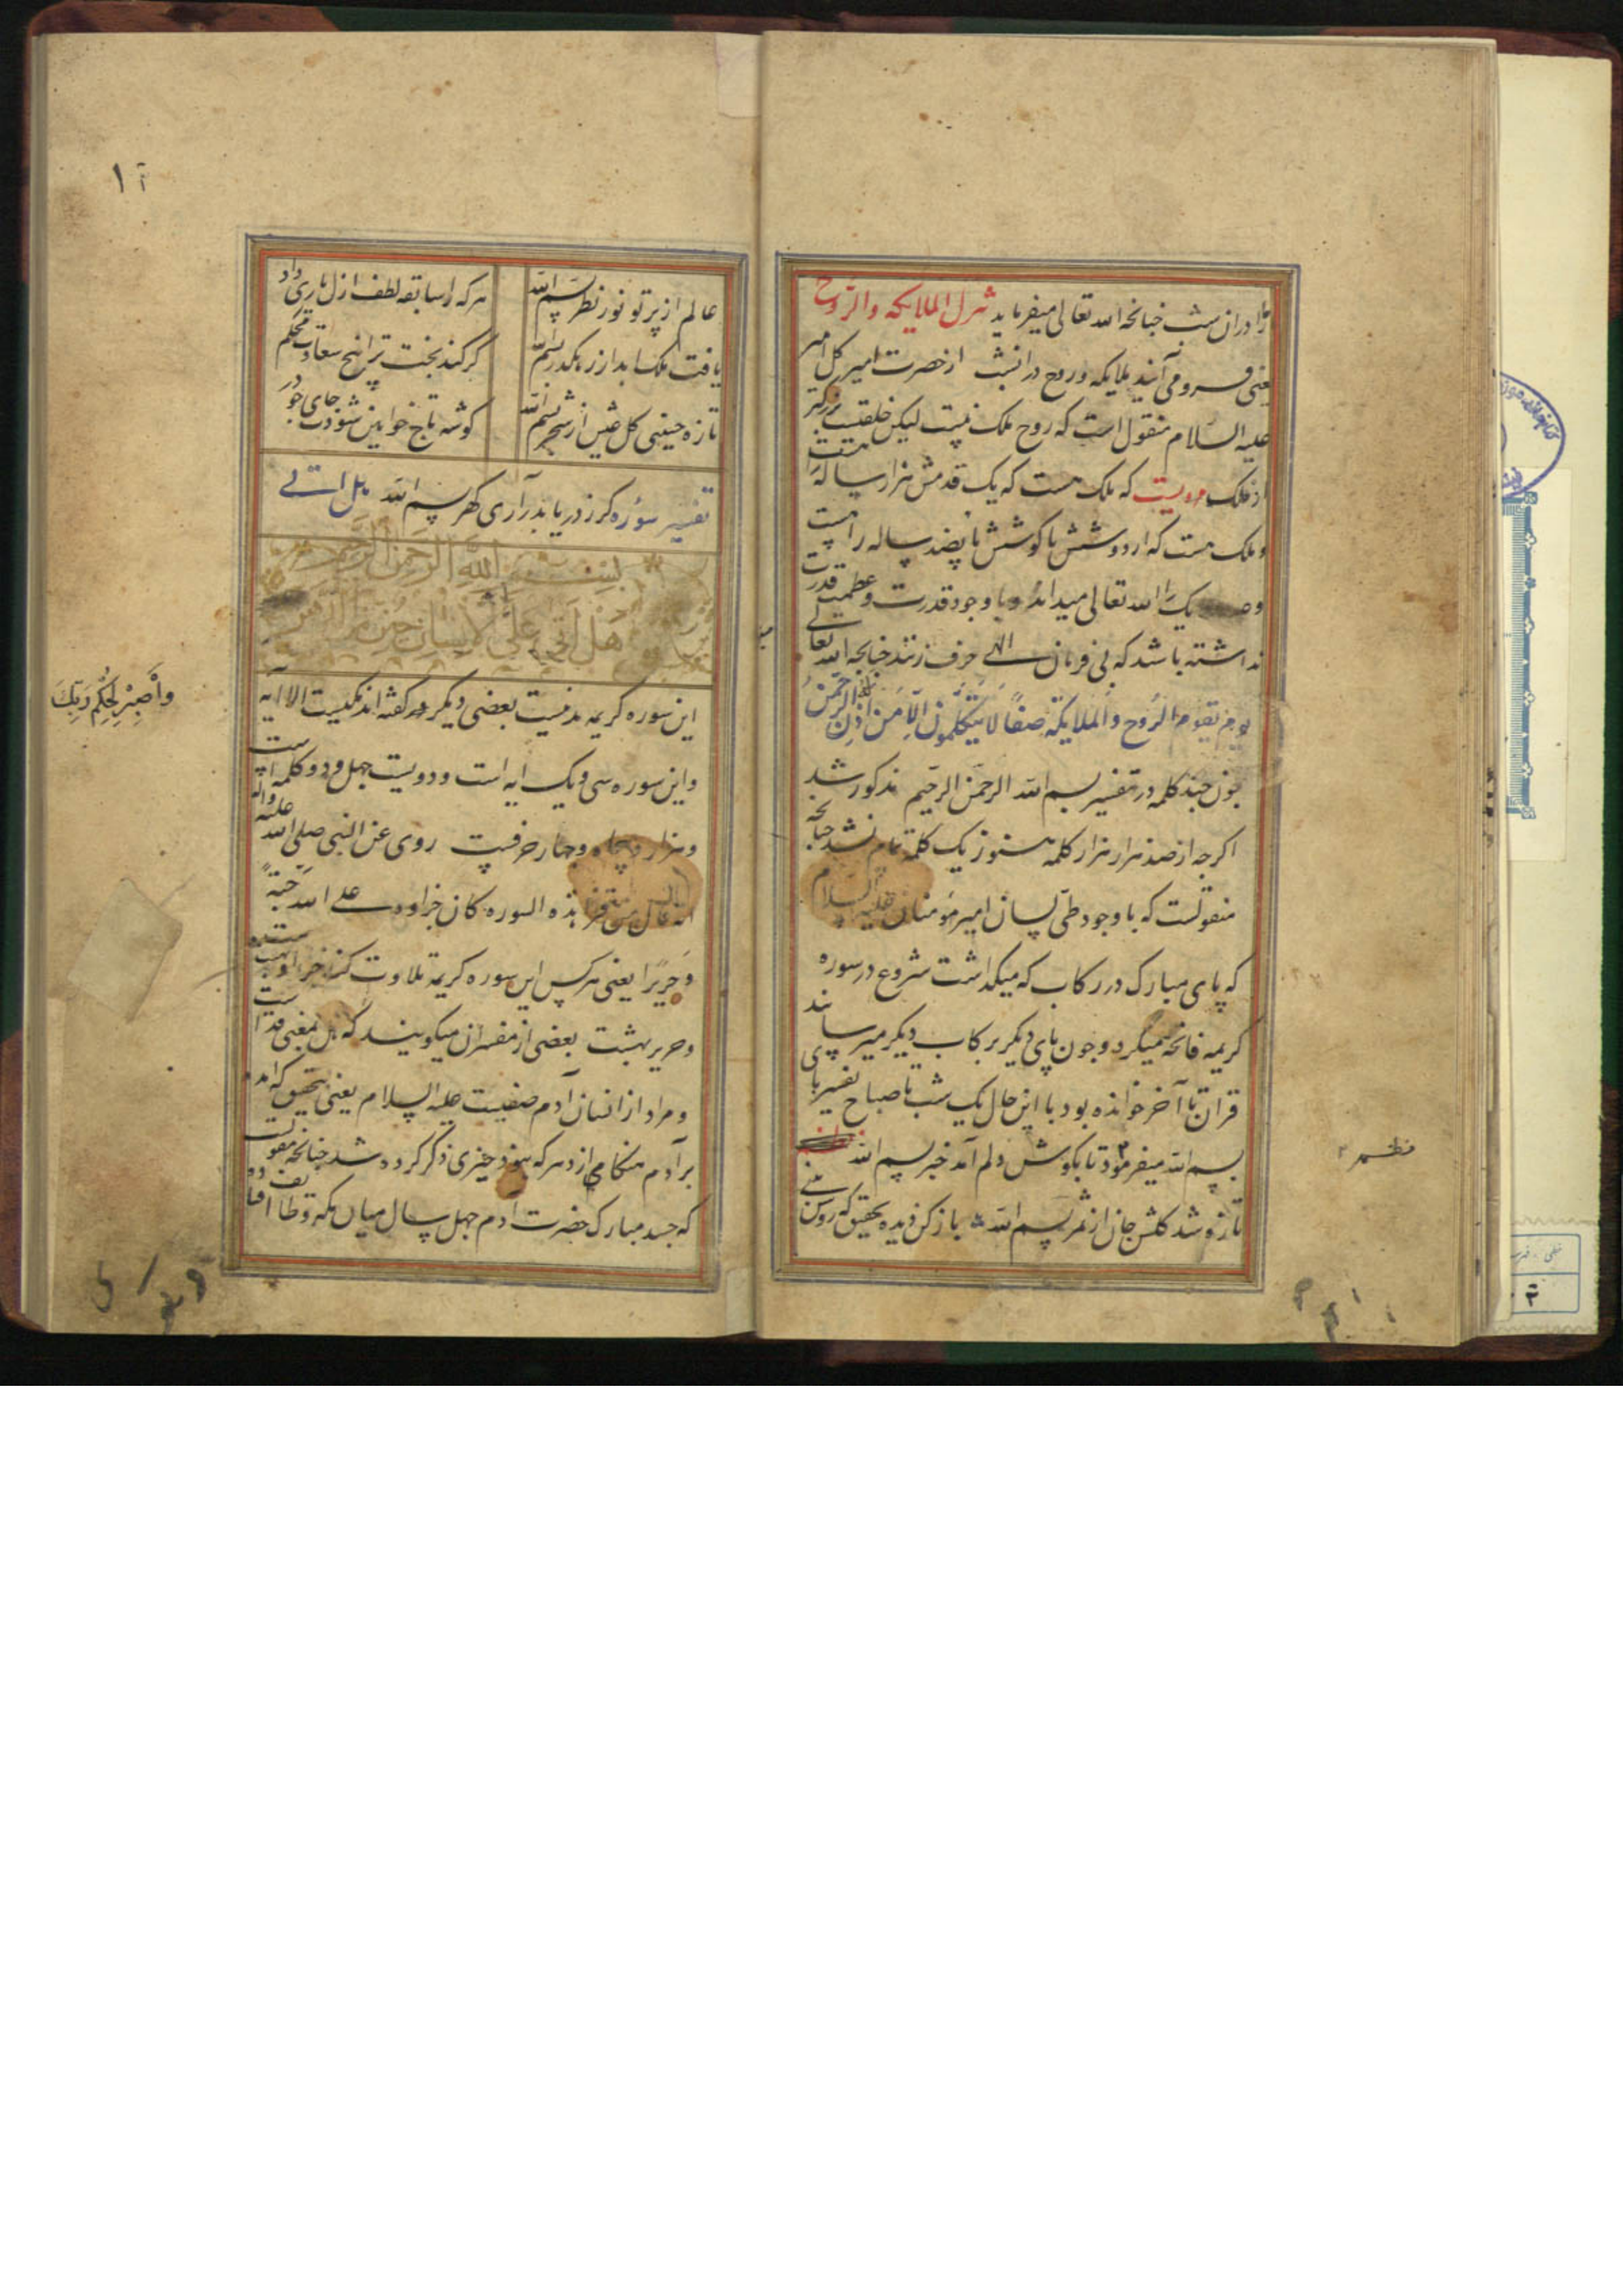 را دران شب چنانچه الله تعالی میفرماید تنزل الملایکه والروح
یعنی فرومی آیند ملایکه وروح درانشب از حضرت امیر کل امیر
علیه السلام منقول است که روح ملک نیست لیکن خلقیست بزرکتر
از ملک مرویست که ملک هست که یک قدمش هزار ساله
وملک هست که از دوشش تا کوشش پانصد ساله راهست
یک الله تعالی میداند وبا وجود قدرت وعظمت قدرت
نداشته باشد که بی فرمان الهی حرف زنند چنانچه الله تعالی
یوم یقوم الروح والملایکة صفا لا یتکلمون الا من اذن له الرحمن
چون چند کلمه در تفسیر بسم الله الرحمن الرحیم مذکور شد
اکرچه از صد هزار هزار کلمه هنوز یک کلمه تمام نشد چنانچه
منقولست که با وجود طی لسان امیر مومنان علیه السلام
که پای مبارک در رکاب که میکداشت شروع در سوره
کریمه فاتحه میکرد و چون پای دیکر برکاب دیکر میرساند
قران تا آخر خوانده بود با این حال یک شب تا صباح تفسیر بای
بسم الله میفرمود تا بکوش دلم آمد خبر بسم الله
تازه شد کلشن جان از ثمر بسم الله باز کن دیده تحقیق که روشن بینی
نظم
١٢
عالم از پرتو نور نظر بسم الله هرکه را سابقه لطف ازل یاری داد
یافت ملک ابد از رهکدر بسم الله کر کند بخت ترا نخ سعادت محکم
تازه چینی کل عیش از شجر بسم الله کوشه تاج خواین شودت جای چو در
تفسیر سوره کر ز دریا بدر آری کهر بسم الله هل اتی
بسم الله الرحمن الرحیم
هل اتی علی الانسان حین من الدهر
این سوره کریمه مدنیست بعضی دیکر کفته اند مکیست الا آیه
واصبر لحکم ربک
واین سوره سی ویک آیه است ودویست چهل ودو کلمه است
وهزار وپنجاه وچهار حرفست روی عن النبی صلی الله علیه واله
انه قال من قرا هذه السوره کان جزاوه علی الله جنة
وحریرا یعنی هرکس این سوره کریمه تلاوت کند جزا او بهشت
وحریر بهشت بعضی از مفسران میکویند که هل بمعنی قد است
ومراد از انسان آدم صفیست علیه السلام یعنی بتحقیق که آمد
بر آدم هنکامی از دهر که نبود چیزی ذکر کرده شد چنانچه منقولست
که جسد مبارک حضرت آدم چهل سال میان مکه وطایف افتاده